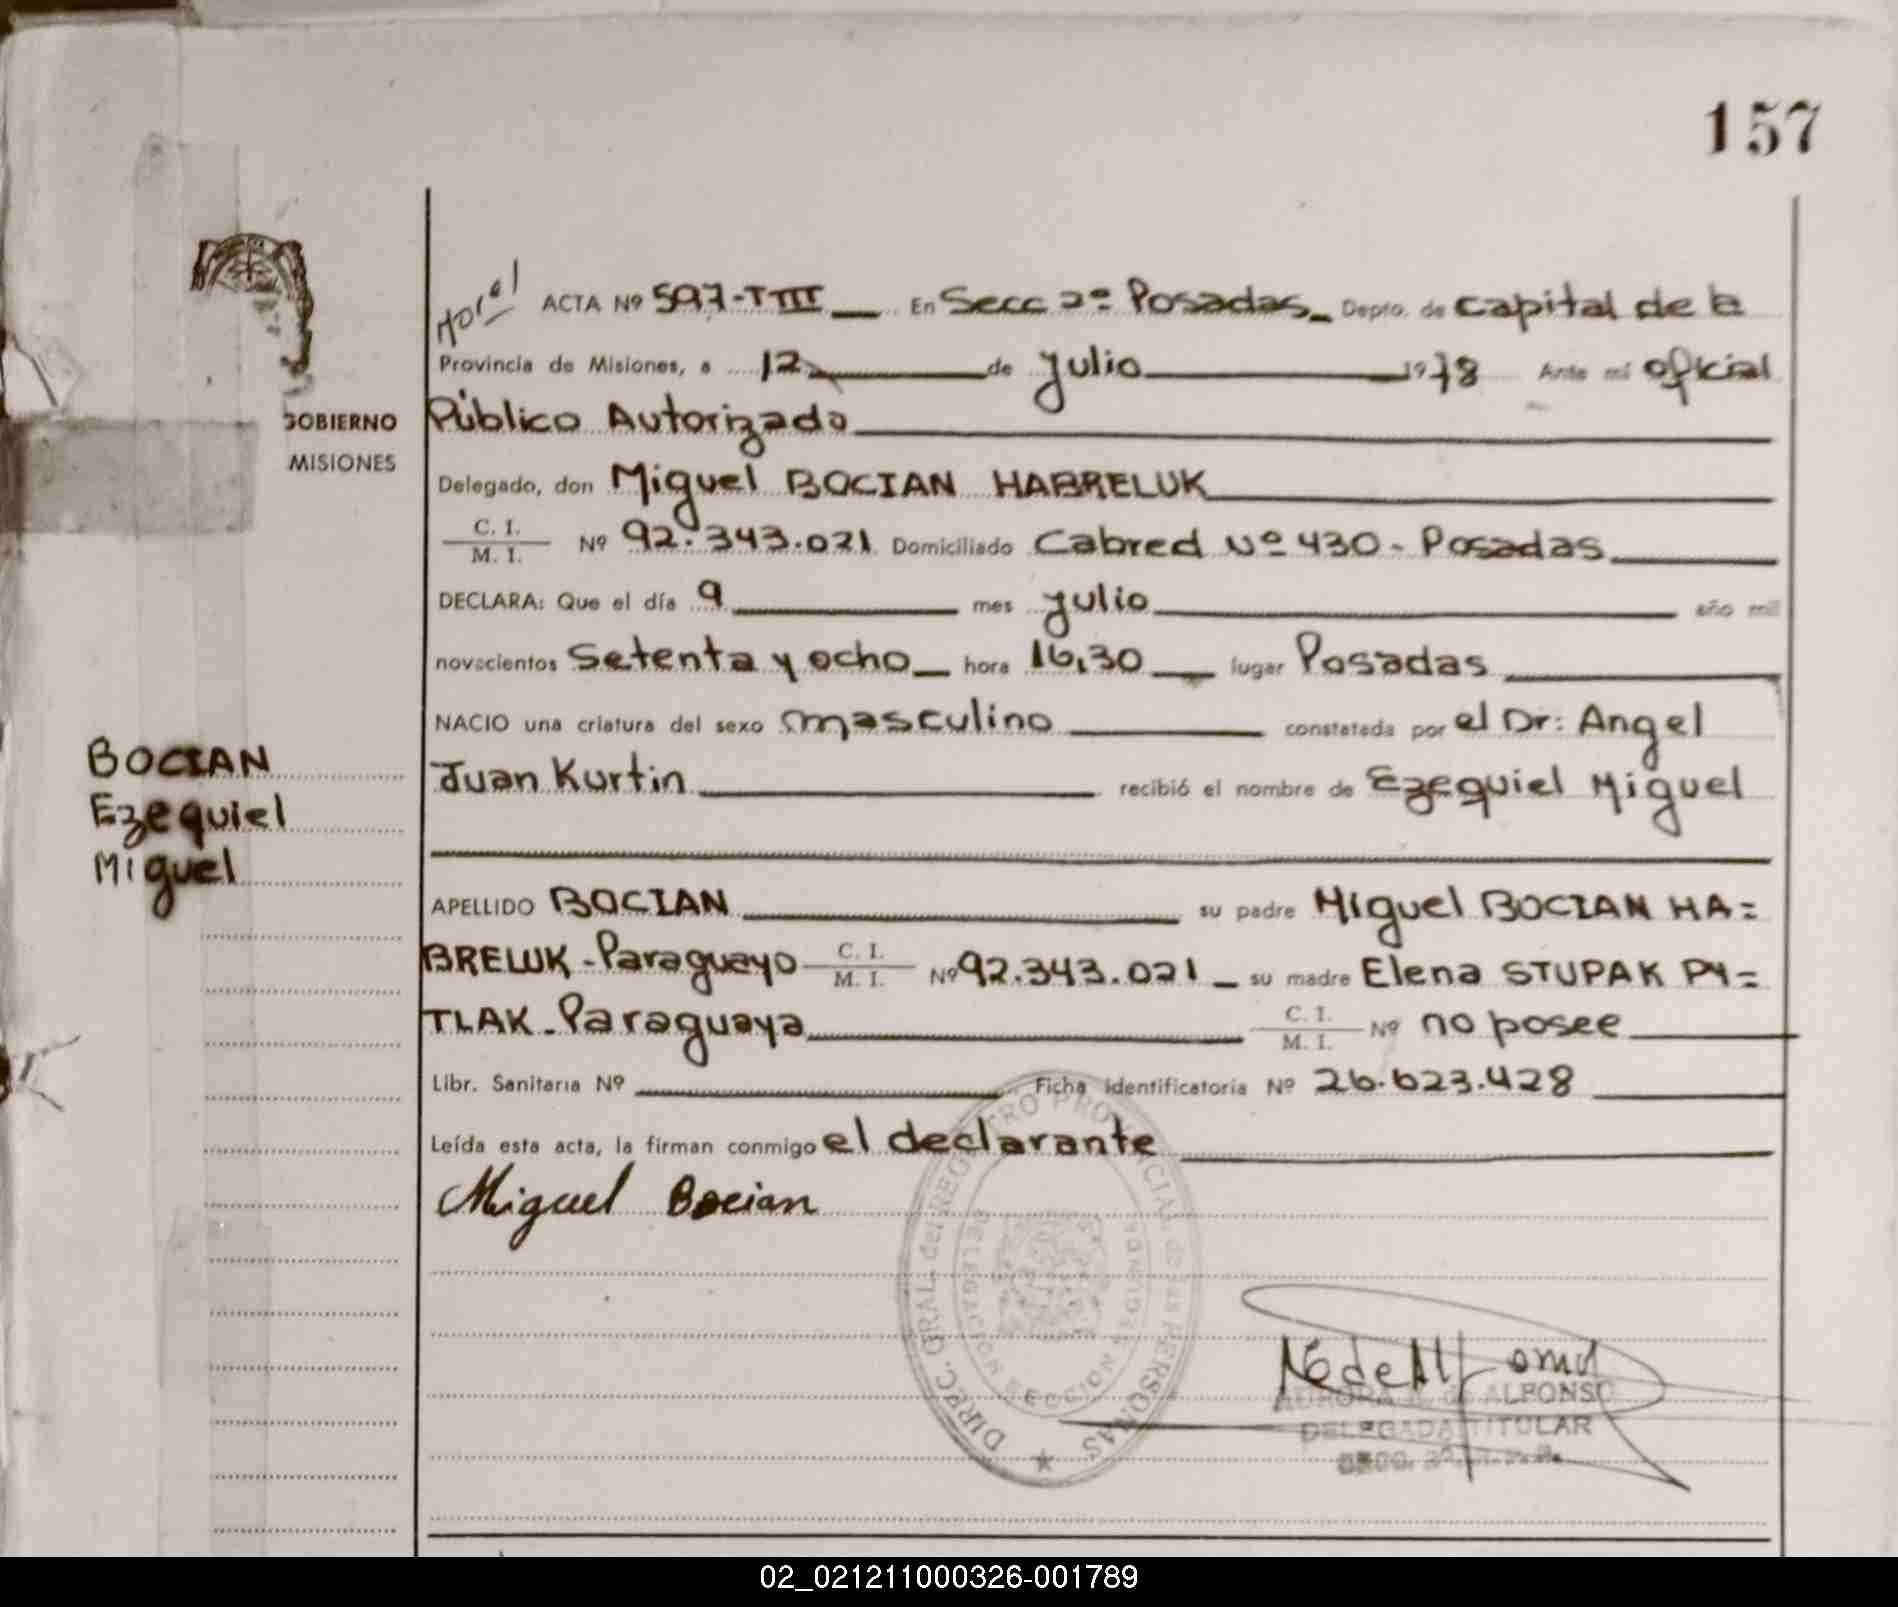 157
ACTA Nº 597-TIII En Secc 2º Posadas Depto. de Capital de la
Provincia de Misiones, a 12 de julio 1978 Ante mí oficial
GOBIERNO
MISIONES
Público Autorizado
Delegado, don Miguel BOCIAN HABRELUK
C. I.
M. I. Nº 92.343.021 Domiciliado Cabred Nº 430 - Posadas
DECLARA: Que el día 9 mes julio año mil
novecientos setenta y ocho hora 16,30 lugar Posadas
NACIO una criatura del sexo masculino constatada por el Dr: Angel
Juan Kurtin recibió el nombre de Ezequiel Miguel
BOCIAN
Ezequiel
Miguel
APELLIDO BOCIAN su padre Miguel BOCIAN HA=
BRELUK - Paraguayo C. I. M. I. Nº 92.343.021 su madre Elena STUPAK PY=
TLAK - Paraguaya C. I. M. I. Nº no posee
Libr. Sanitaria Nº Ficha identificatoria Nº 26.623.428
Leída esta acta, la firman conmigo el declarante
Miguel Bocian
DIREC. GRAL. del REGISTRO PROVINCIAL de las PERSONAS
DELEGACION SECCION POSADAS
AURORA de ALFONSO
DELEGADA TITULAR
02_021211000326-001789